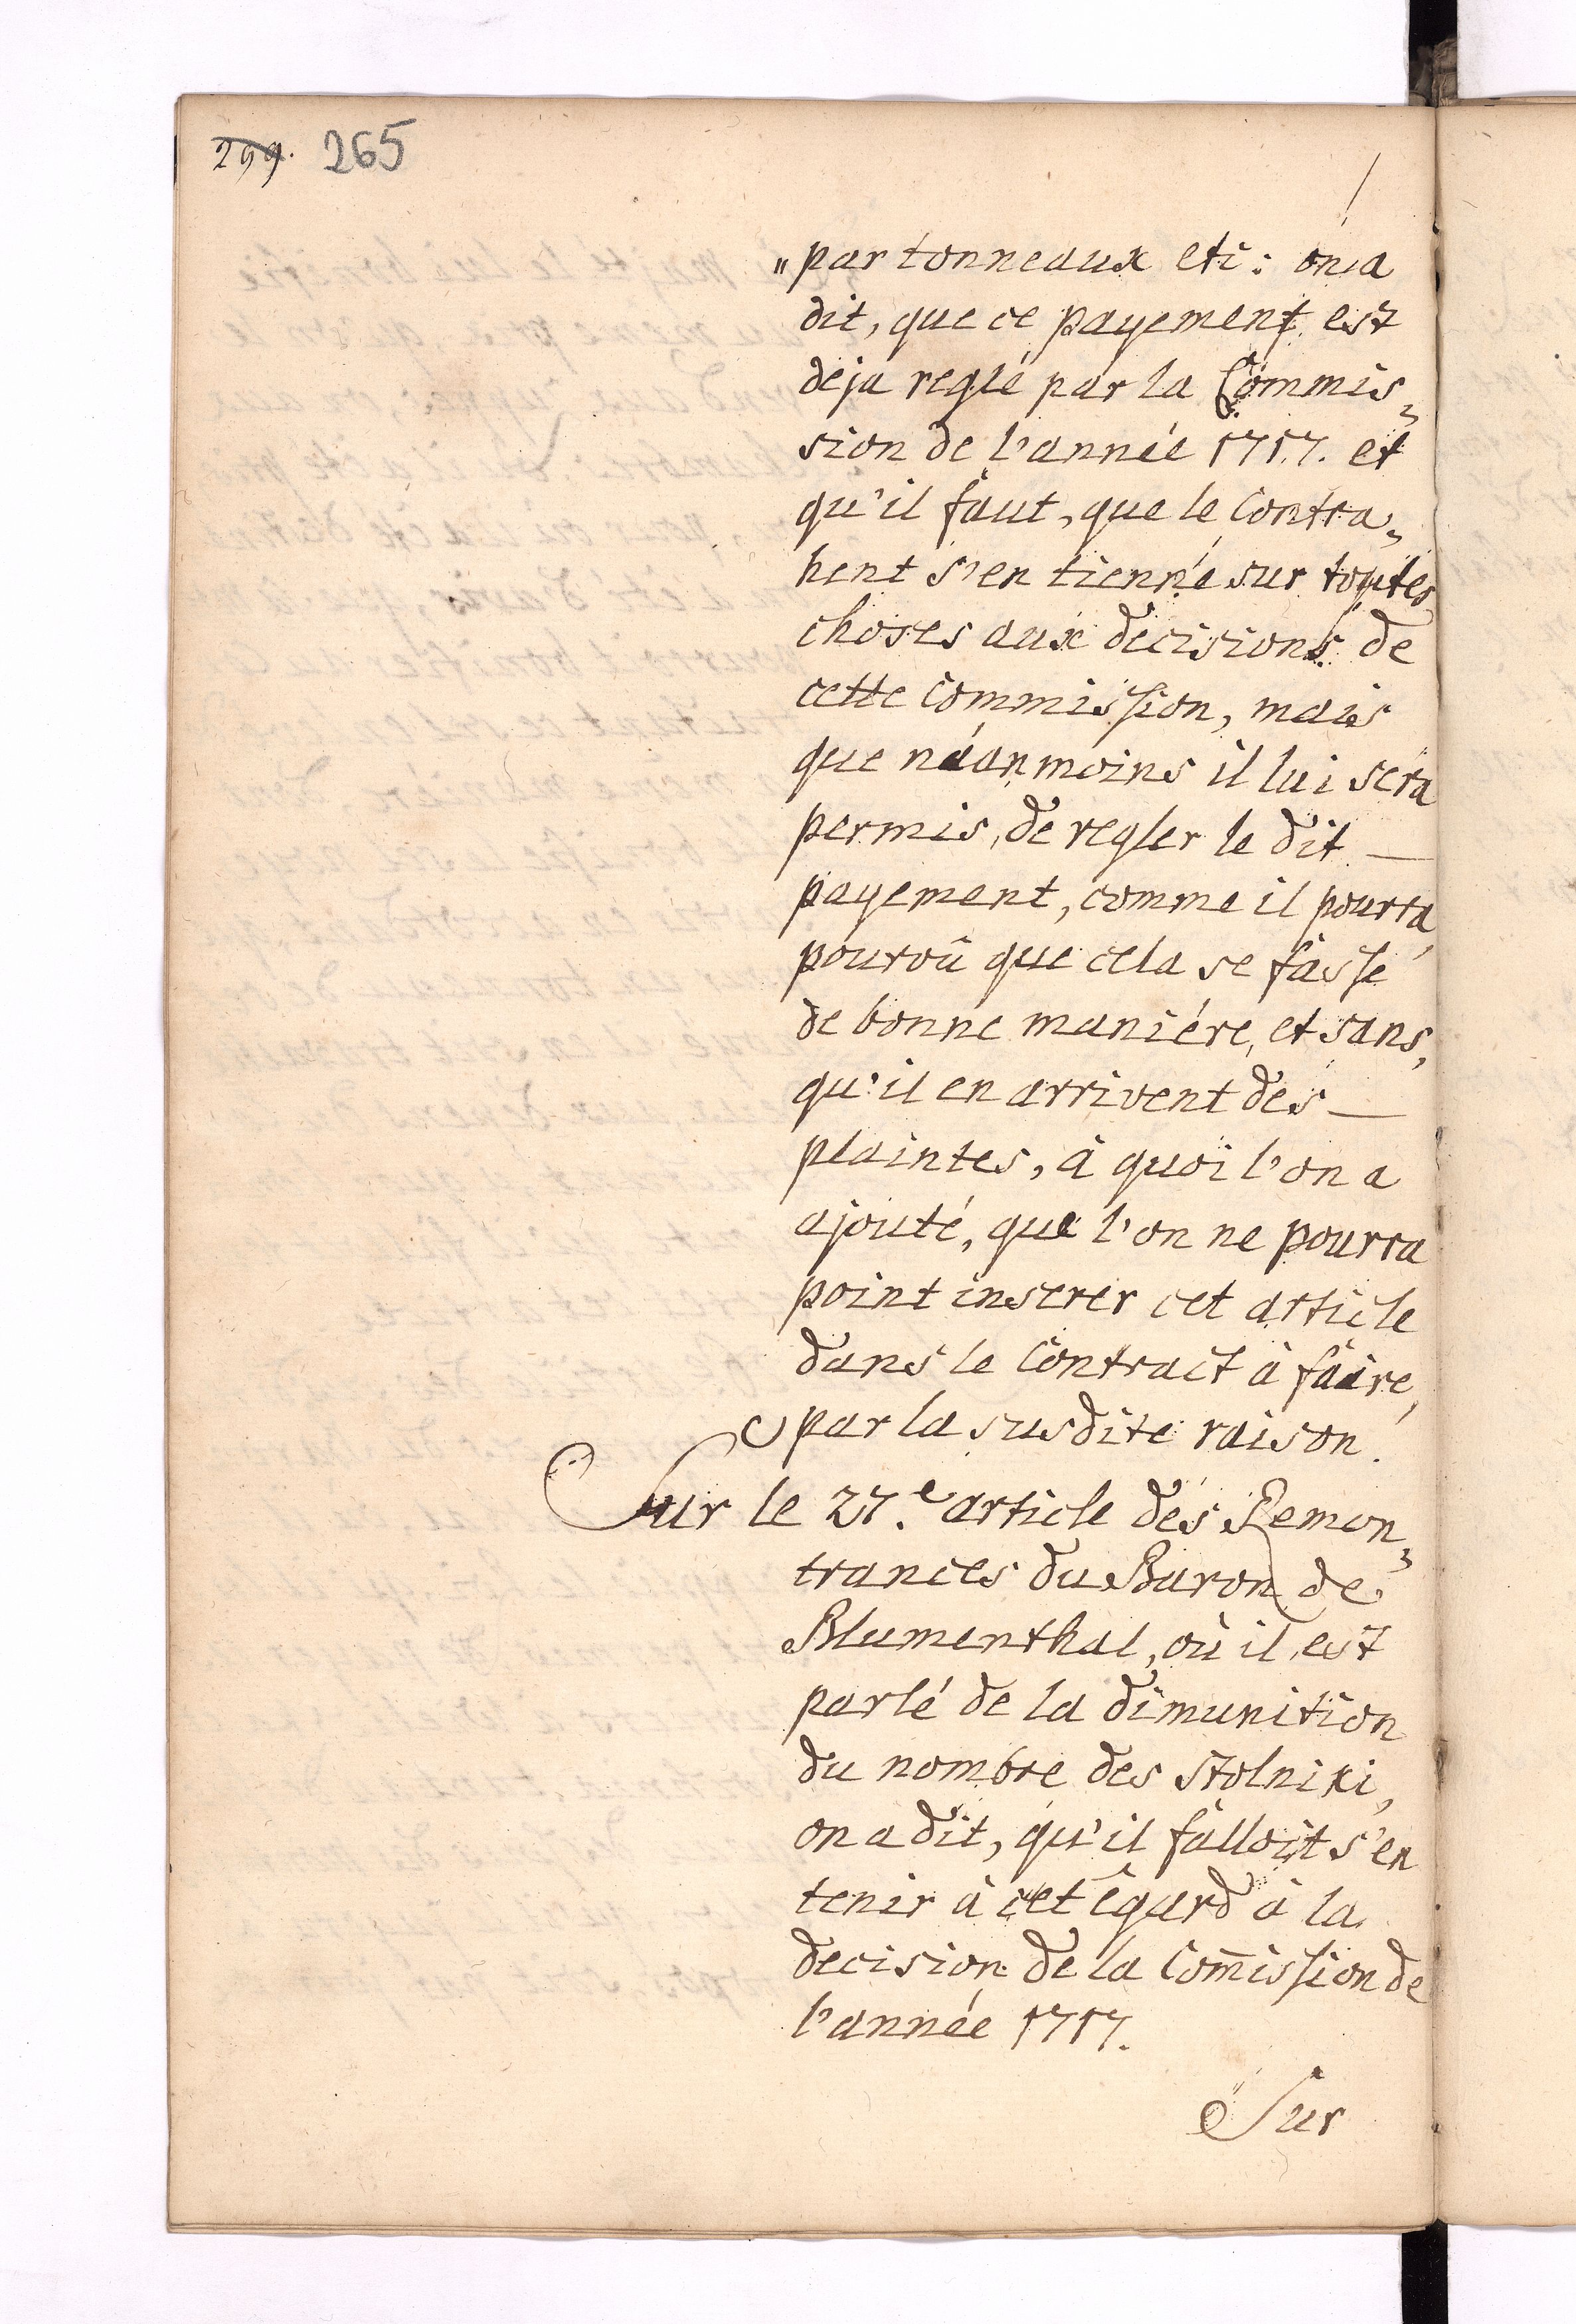 299. 265
„par tonneaux etc: on a
dit, que ce payement est
deja reglé par la Commis„
sion de l'année 1717. et
qu'il faut, que le Contra„
hent s'en tienne sur toutes
choses aux decisions de
cette Commission, mais
que néanmoins il lui sera
permis, de regler le dit —
payement, comme il pourra,
pourvû que cela se fasse
de bonne maniére, et sans,
qu'il en arrivent des —
plaintes, à quoi l'on a
ajouté, que l'on ne pourra
point inserer cet article
dans le Contract à faire,
par la susdite raison.
Sur le 27.e article des Remon„
trances du Baron de
Blumenthal, où il est
parlé de la dimunition
du nombre des Stolniki,
on a dit, qu'il falloit s'en
tenir à cet égard à la
decision de la Com̄ission de
l'année 1717.
Sur